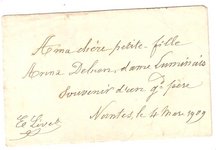 A ma chère petite-fille
Anna Delnon, dame Luminais
Souvenir d'un gd père
Nantes, le 4 Mar 1909
E Livet